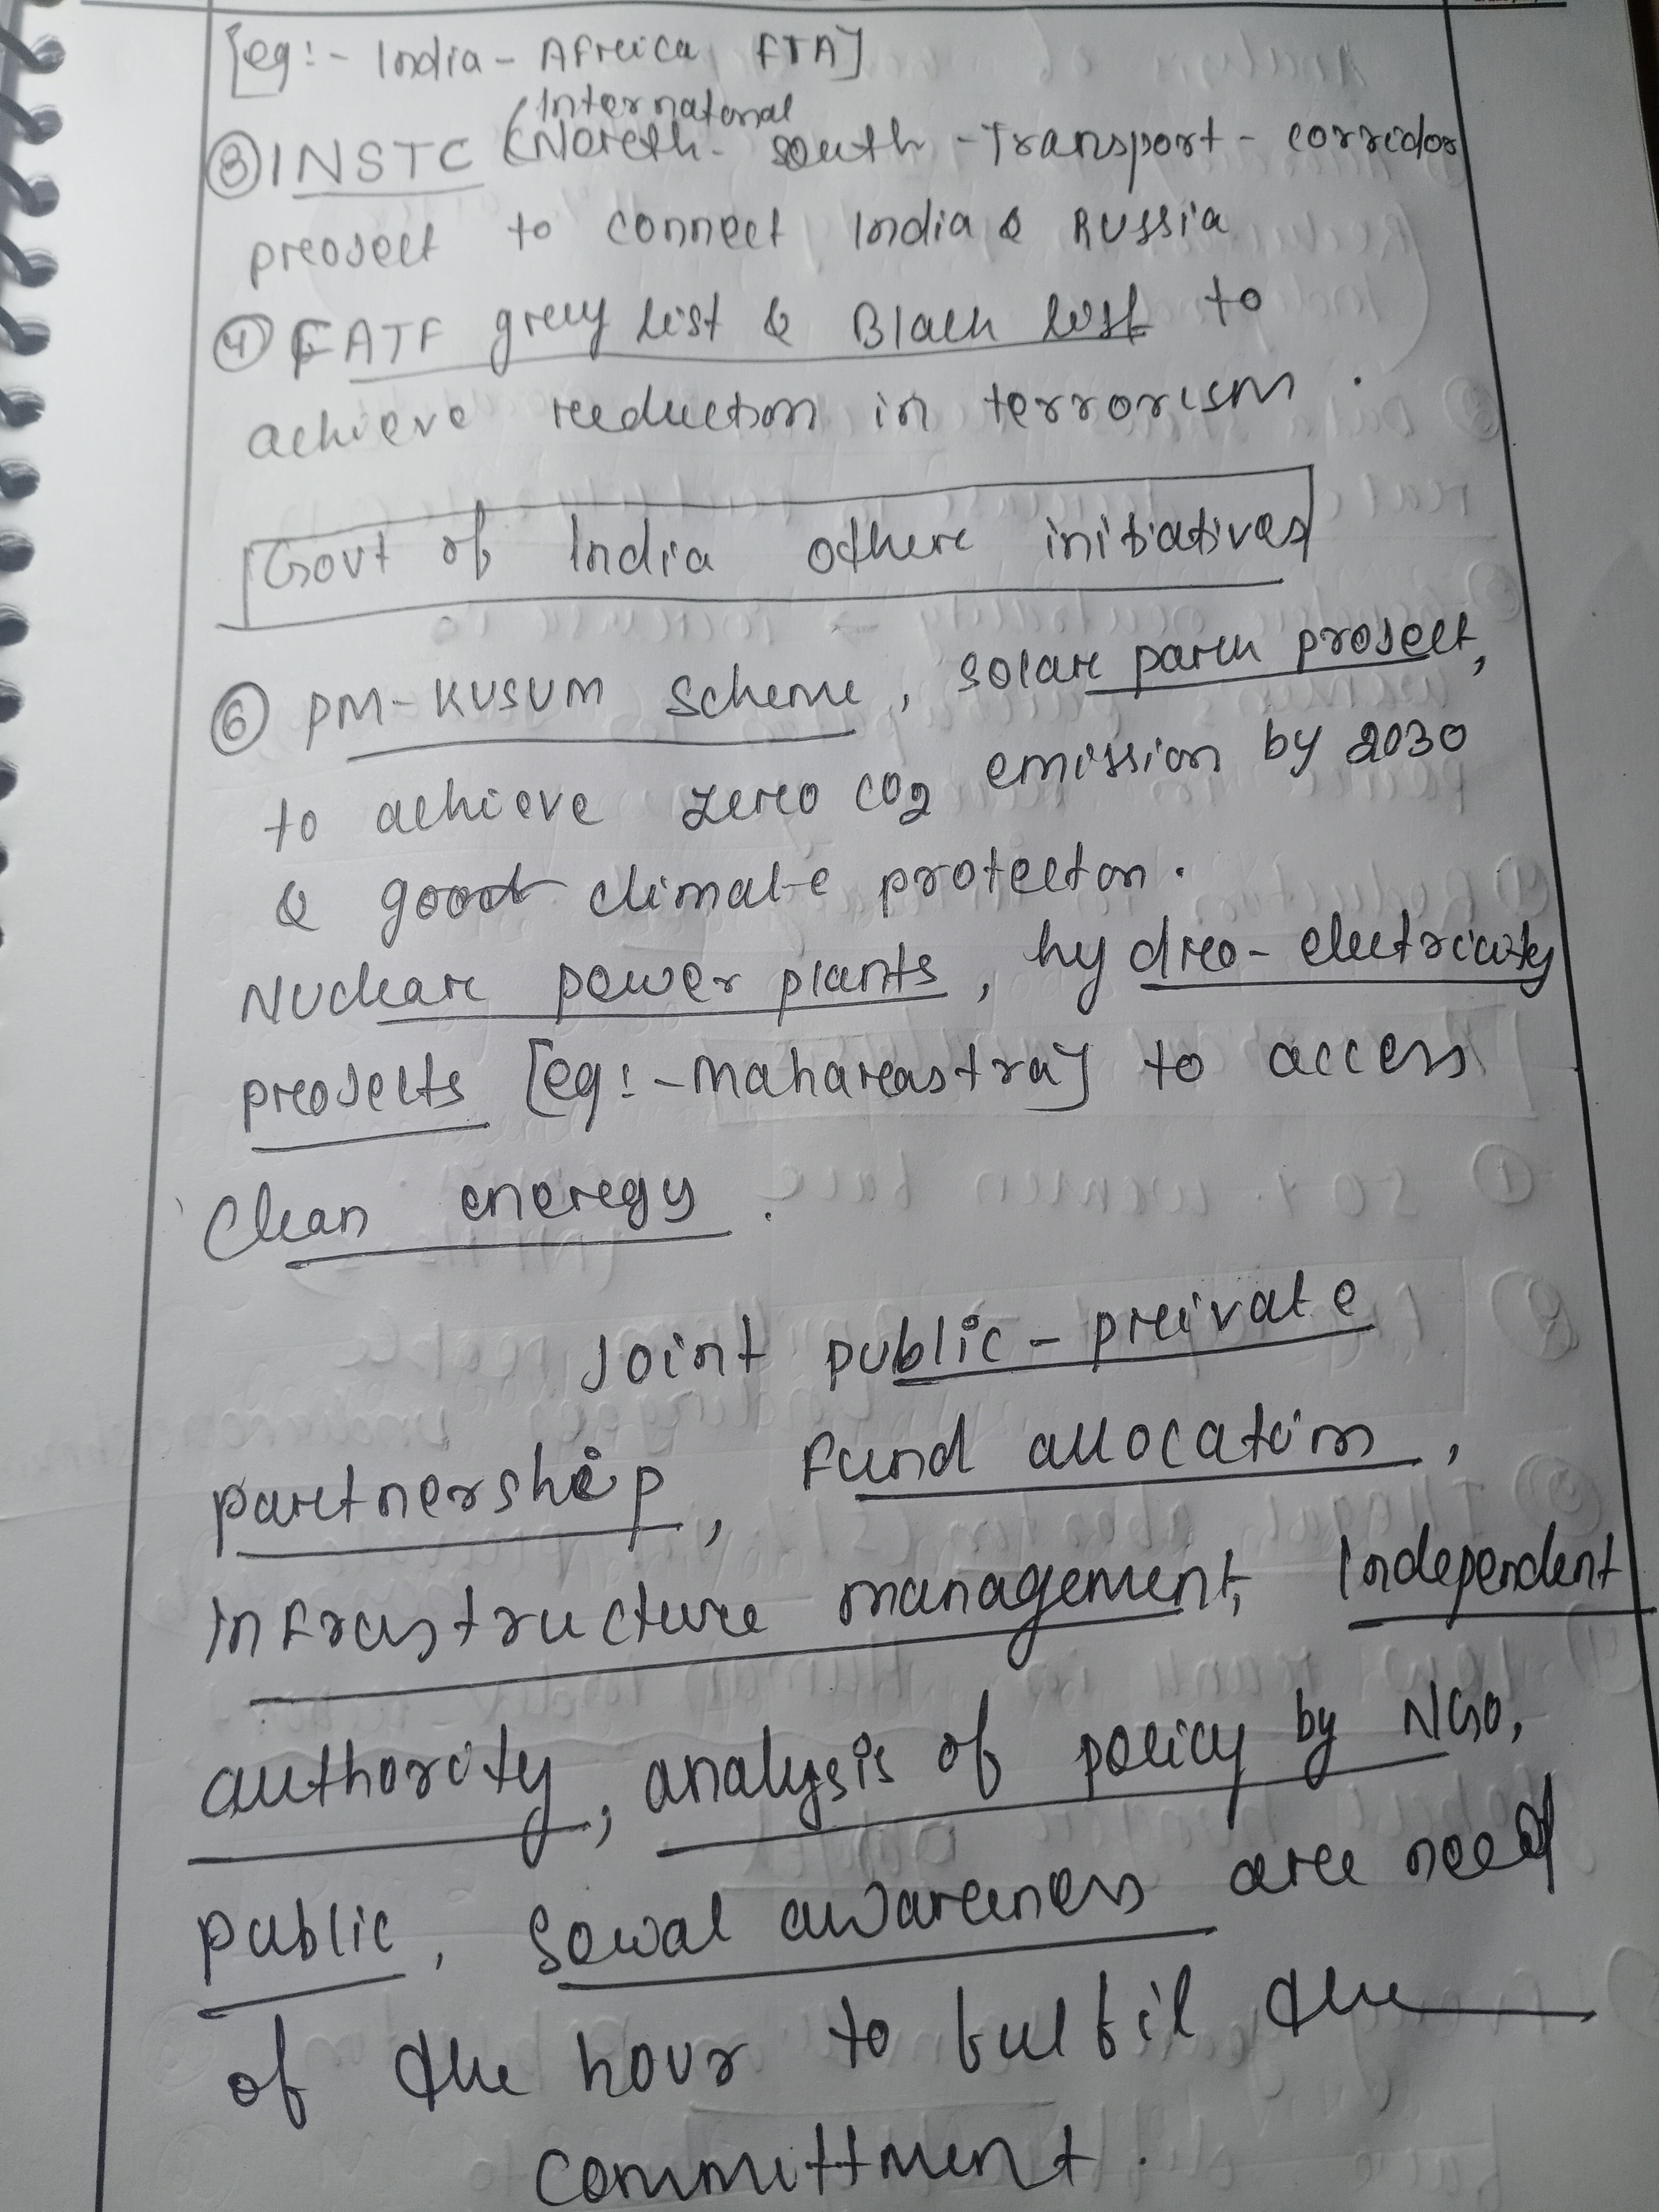 [eg:- India - Africa FTA]
(International
③ INSTC (North- south - Transport - corridor
project to connect India & Russia
④ FATF grey list & Black list to
achieve reduction in terrorism.
Govt of India other initiatives
⑥ PM-KUSUM Scheme, solar park project,
to achieve zero CO2 emission by 2030
& good climate protection.
Nuclear power plants, hydro-electricity
projects [eg:- Maharastra] to access
Clean energy.
Joint public-private
partnership, Fund allocation,
infrastructure management, Independent
authority, analysis of policy by NGO,
public, Social awareness are need
of the hour to fulfil the
committment.